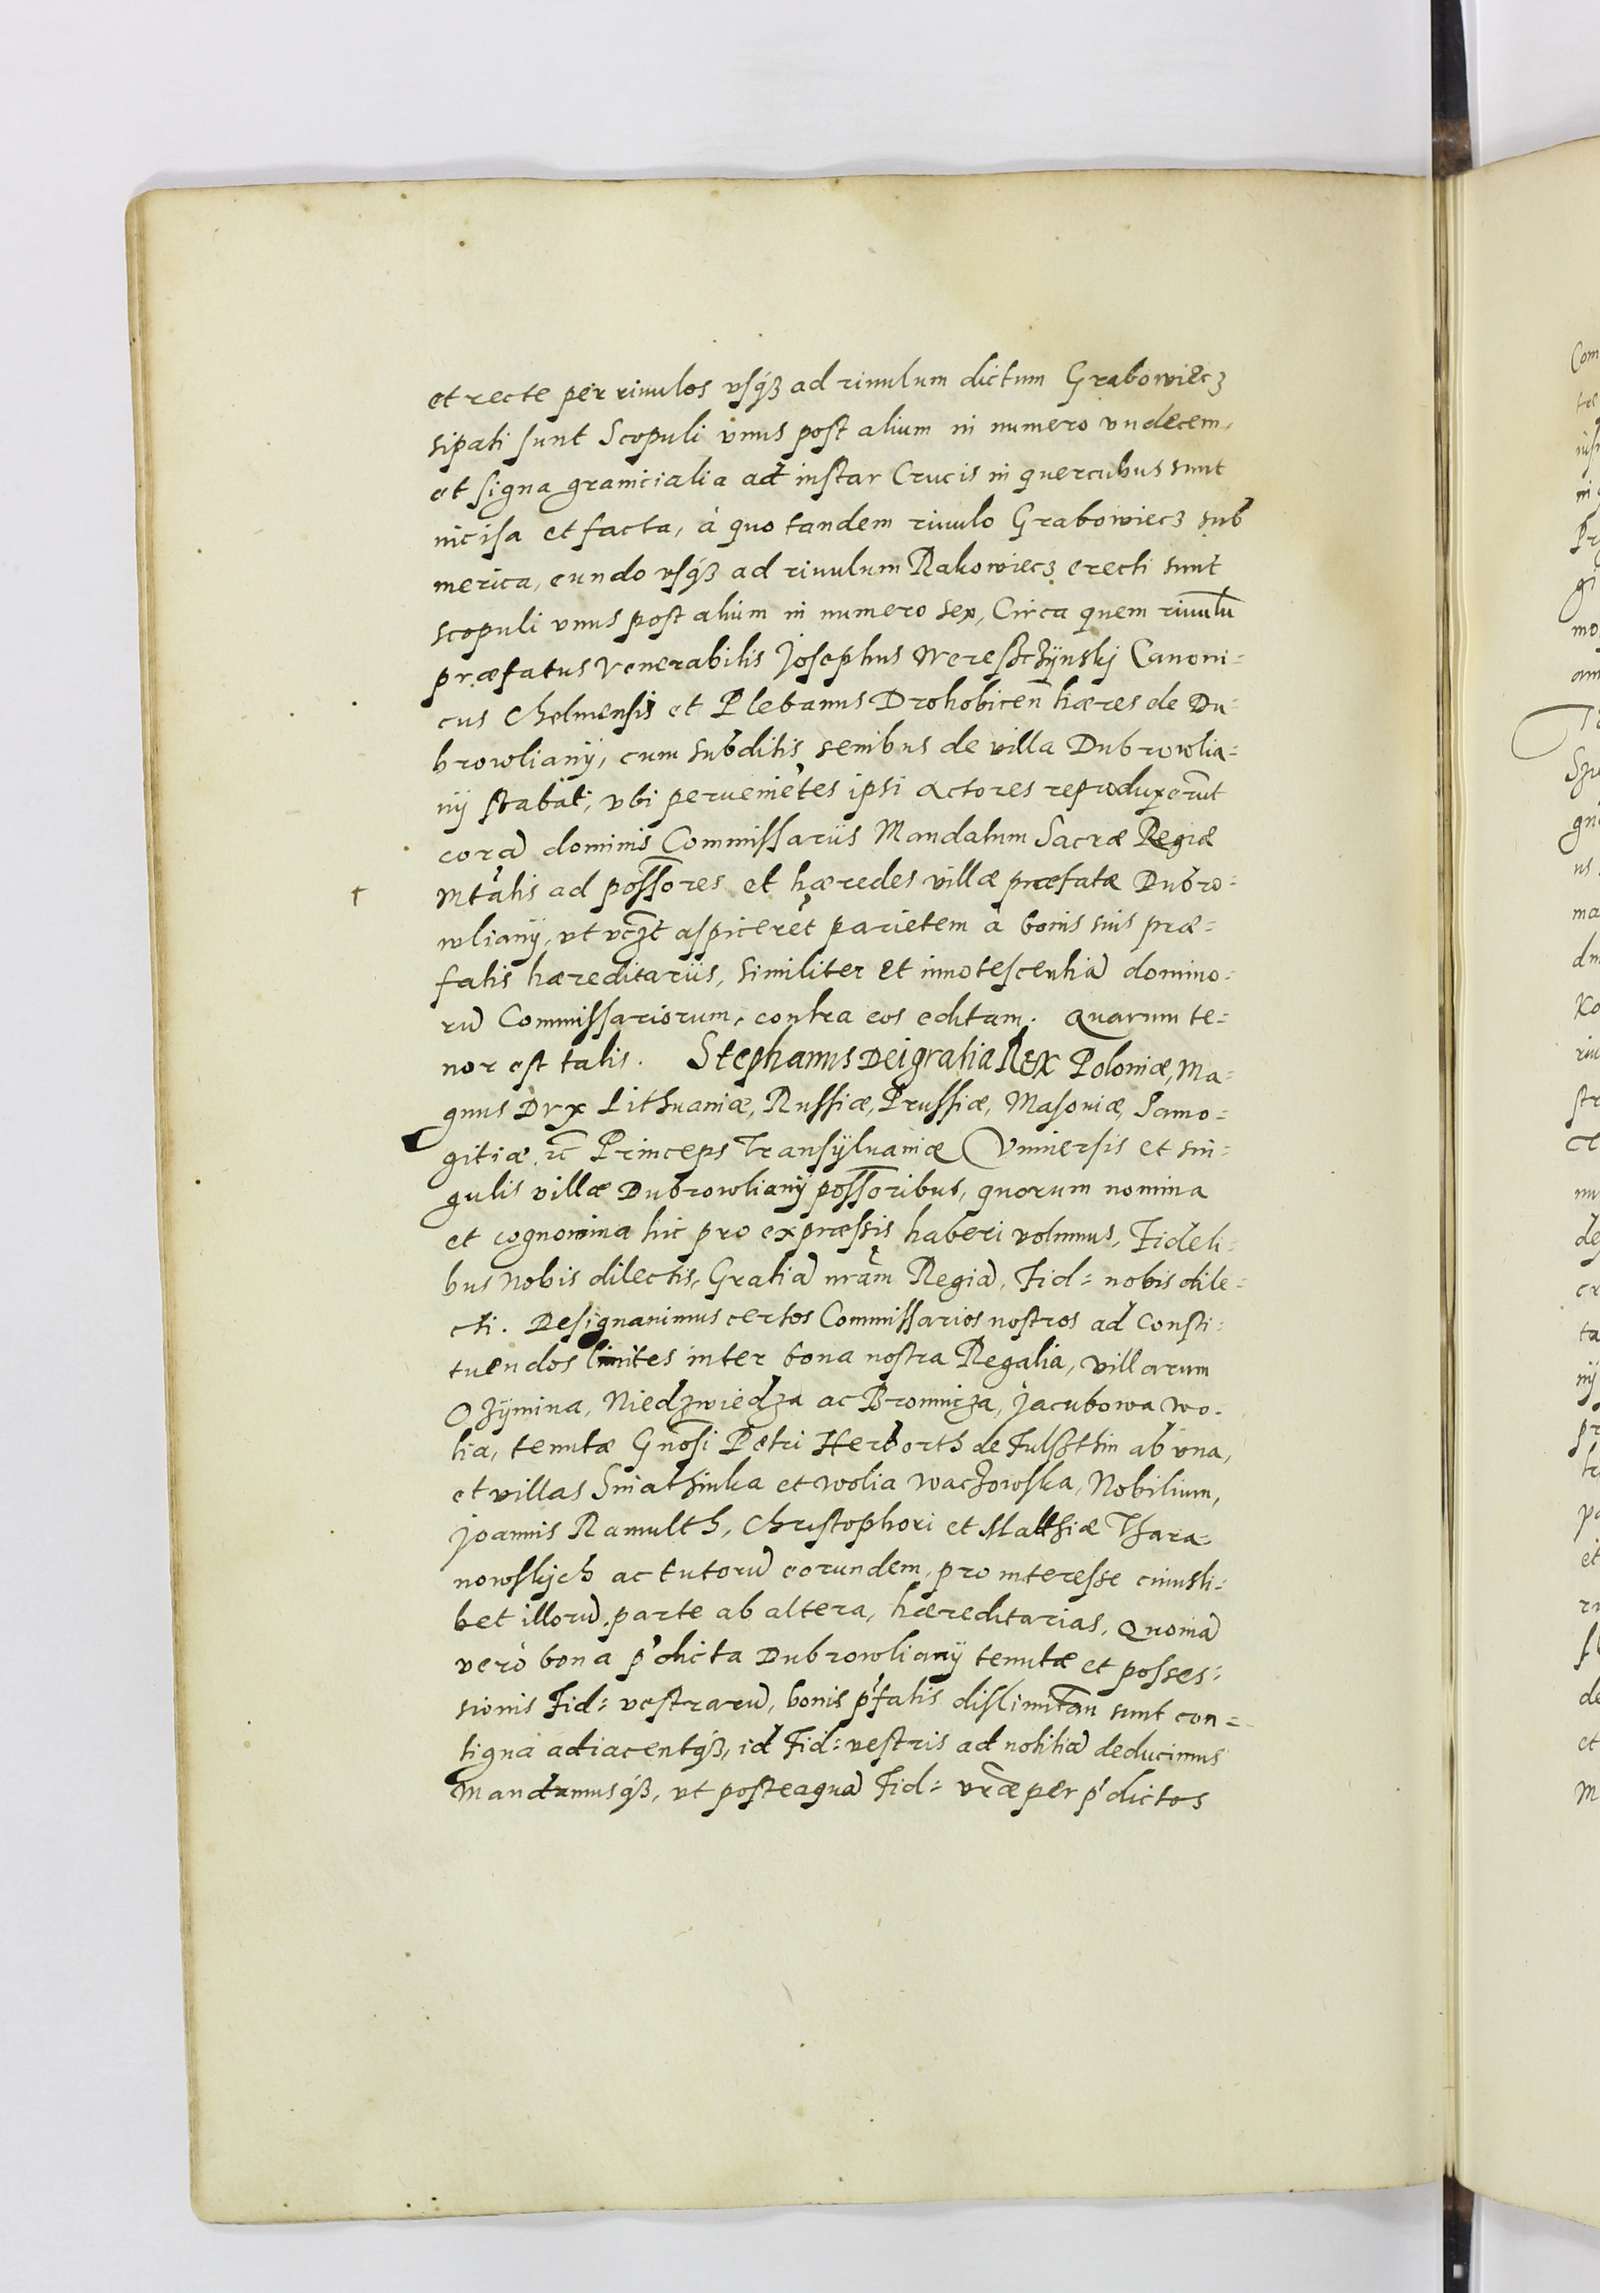 et recte per riuulos vsq́ȝ ad riuulum dictum Grabowiecȝ
sipati sunt Scopuli vnus post alium in numero vndecem,
et signa granicialia ad instar Crucis in quercubus sunt
incisa et facta, à quo tandem riuulo Grabowiecȝ sub
merica, eundo vsq́ȝ ad riuulum Rakowiecȝ erecti sunt
scopuli vnus post alium in numero sex, Circa quem riuulū
præfatus Venerabilis Josephus Wereszcżÿnskj Canoni=
cus Chelmensis et Plebanus Drohobiceñ hæres de Du=
browlianÿ, cum subditis senibus de villa Dubrowlia=
nÿ stabat, vbi peruenie᷑tes ipsi Actores reproduxerūt
corã dominis Commissariis Mandatum Sacræ Regiæ
Mtátis ad poss͞ores et hæredes villæ præfatæ Dubro=
wlianÿ, vt vcȝt aspicere᷑t parietem à bonis suis præ=
fatis hæreditariis, similiter et innotescentiã domino=
rũ Commissariorum, contra eos editam. Quarum te=
nor est talis. Stephanus Dei gratia Rex Poloniæ, Ma=
gnus Dux Lithuaniæ, Russiæ, Prussiæ, Masoniæ, Samo=
gitiæ, ⁊c̃ Princeps Transÿluaniæ Vniuersis et sin=
gulis villæ Dubrowlianÿ poss͞oribus, quorum nomina
et cognomina hic pro expræssis haberi volumus, Fideli=
bus Nobis dilectis, Gratiã nrãm Regiã, Fid= nobis dile=
cti. Designauimus certos Commissarios nostros ad Consti=
tuendos limites inter bona nostra Regalia, villarum
Ożÿmina, Niedzwiedza ac Bronnicza, Jacubowa Wo=
lia, tenutæ Gnõsi Petri Herborth de Fulszthin ab vna,
et villas Sniathinka et Wolia Wacżowska, Nobilium,
Joannis Ramulth, Christophori et Matthiæ Thara=
nowskjch ac tutorũ eorundem, pro interesse cuiusli=
bet illorũ, parte ab altera, hæreditarias, Quoniã
verò bona p᷑dicta Dubrowlianÿ tenutæ et posses=
sionis Fid= vestrarũ, bonis p᷑fatis dislimitan̄ sunt con=
tigna adiacentq́ȝ, id Fid= vestris ad notitiã deducimus
Mandamusq́ȝ, vt posteaquã Fid= vrãe per p᷑dictos